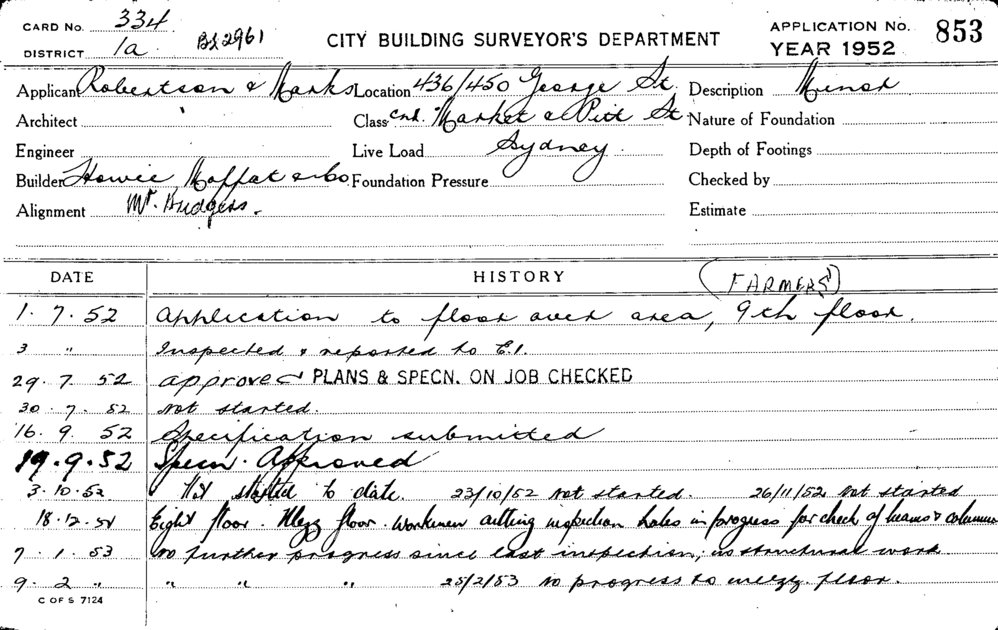 CARD No. 334
DISTRICT 1a BS2961
CITY BUILDING SURVEYOR'S DEPARTMENT
APPLICATION No. 853
YEAR 1952
Applicant Robertson & Marks Location 436/450 George St. Description Minor
Architect Class Cnr. Market & Pitt St Nature of Foundation
Engineer Live Load Sydney. Depth of Footings
Builder Howie, Moffat & Co. Foundation Pressure Checked by
Alignment Mr. Hudgess. Estimate
DATE HISTORY (FARMERS)
1. 7. 52 Application to floor over area, 9th floor.
3 " Inspected & reported to C.I.
29. 7. 52 approved PLANS & SPECN. ON JOB CHECKED
30. 7. 52 Not started.
16. 9. 52 Specification submitted
19. 9. 52 Specn. Approved
3. 10. 52 Not started to date. 23/10/52 Not started. 26/11/52 Not started
18. 12. 52 Eight floor. Mezz floor. Workmen cutting inspection holes in progress for check of beams & columns
7. 1. 53 No further progress since last inspection; no structural work
9. 2 " " " " 25/2/53 No progress to mezz. floor.
C OF S 7124